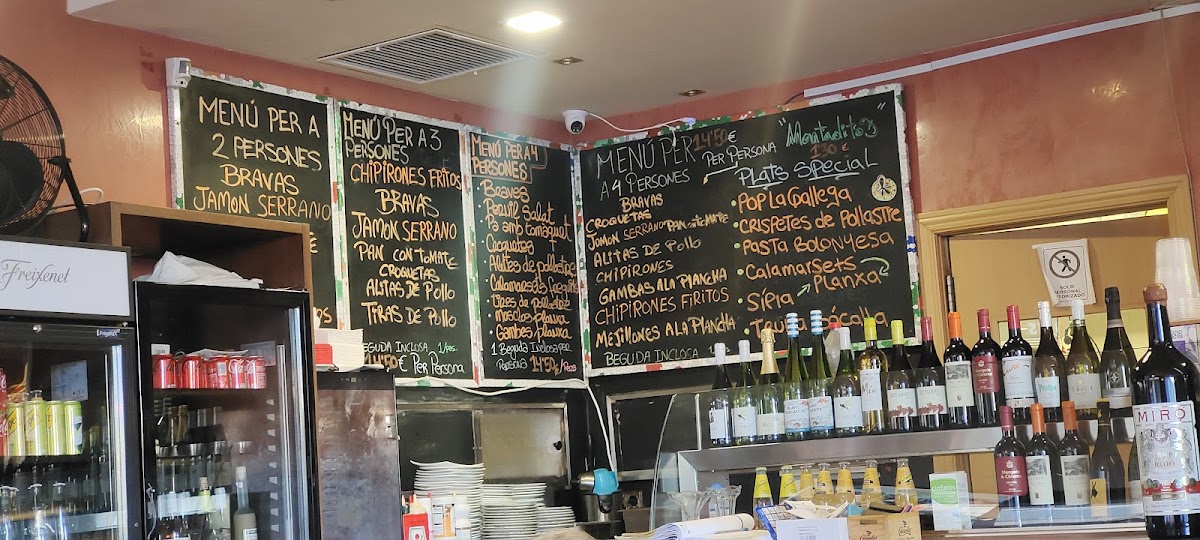 MENÚ PER A
2 PERSONES
BRAVAS
JAMON SERRANO
MENÚ PER A 3
PERSONES
CHIPIRONES FRITOS
BRAVAS
JAMON SERRANO
PAN CON TOMATE
CROQUETAS
ALITAS DE POLLO
TIRAS DE POLLO
14'50€ PER PERSONA
MENÚ PER A 4
PERSONES
• BRAVES
• Pa amb tomaquet
• Croquetes
• Gambes planxa
1 Beguda Inclosa per
Persona 14'50€
MENÚ PER
A 4 PERSONES
14'50€
PER PERSONA
BRAVAS
CROQUETAS
JAMON SERRANO PAN TOMATE
ALITAS DE POLLO
CHIPIRONES
GAMBAS A LA PLANCHA
CHIPIRONES FRITOS
MEJILLONES A LA PLANCHA
BEGUDA INCLOSA
"Montaditos
1'30€
PLATS SPECIAL
• POP LA GALLEGA
• CRISPETES DE POLLASTRE
• PASTA BOLONYESA
• CALAMARSETS
• SÍPIA PLANXA
Freixenet
SOLO
PERSONAL
AUTORIZADO
MIRO